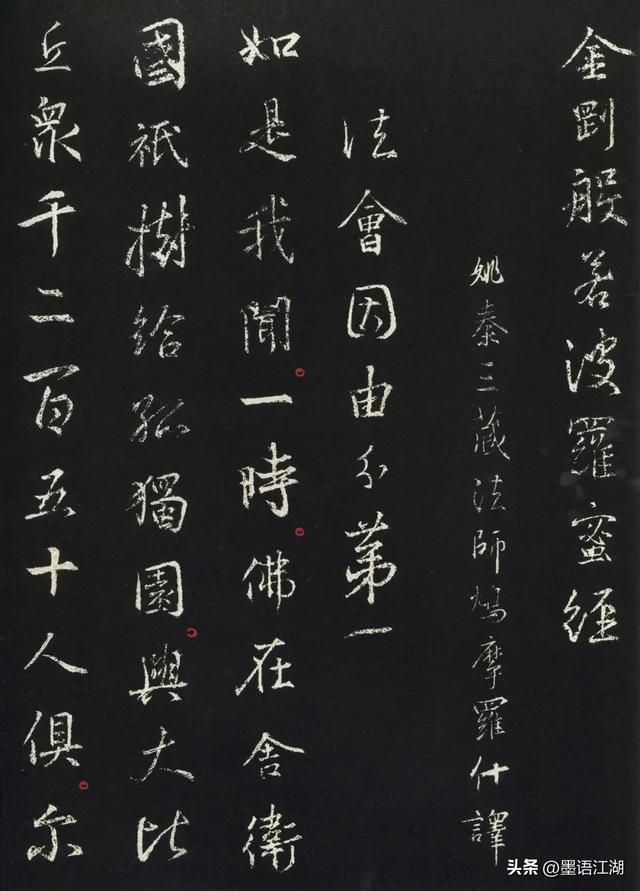 金剛般若波羅蜜經
姚秦三藏法師鳩摩羅什譯
法會因由分第一
如是我聞。一時。佛在舍衛
國祇樹給孤獨園。與大比
丘眾千二百五十人俱。尔
头条 @墨语江湖